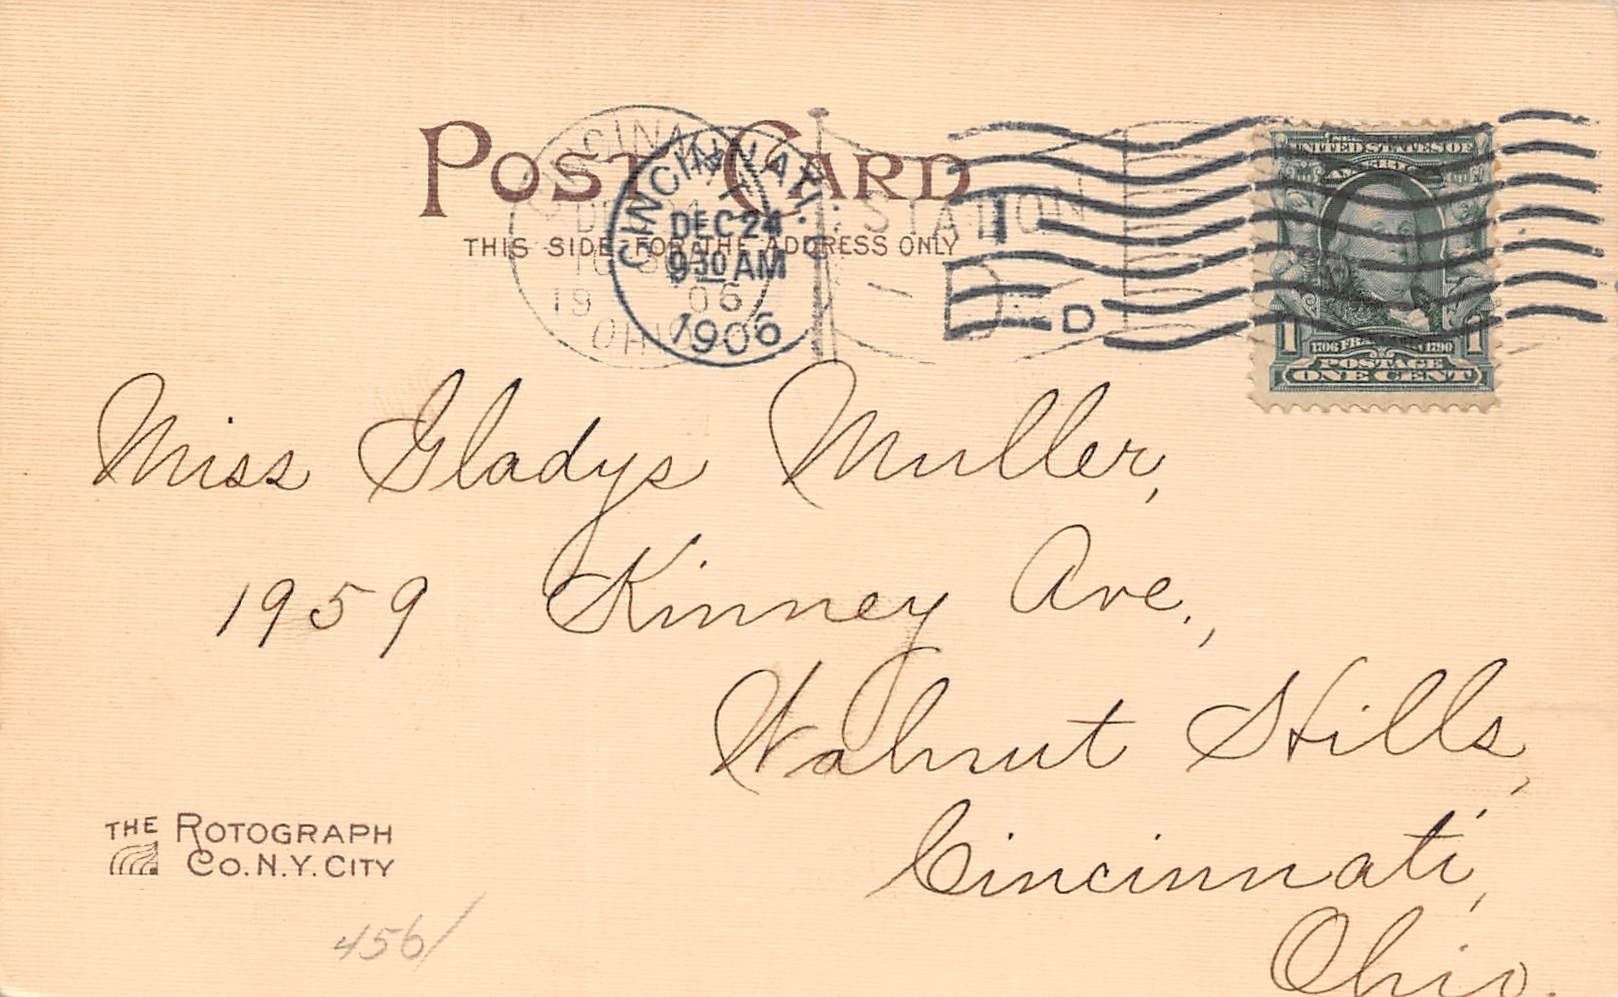 POST CARD
THIS SIDE FOR THE ADDRESS ONLY
CINCINNATI, O.
DEC 24
9 30 AM
1906
STATION
D
UNITED STATES OF
AMERICA
1 1706 FRANKLIN 1790 1
POSTAGE
ONE CENT
Miss Gladys Muller,
1959 Kinney Ave.,
Walnut Hills,
Cincinnati,
Ohio.
THE ROTOGRAPH
CO. N.Y. CITY
456/